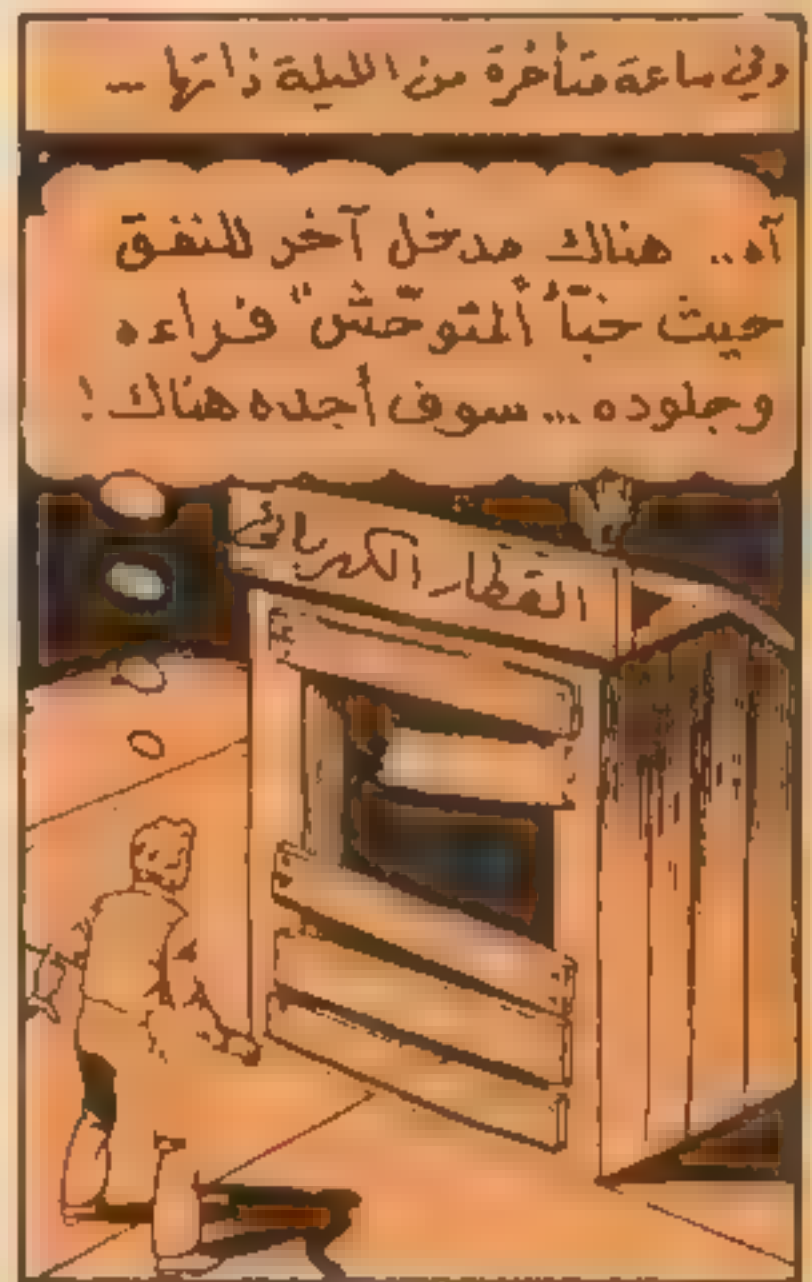 وفي ساعة متأخرة من الليلة ذاتها ...
آه.. هناك مدخل آخر للنفق
حيث خبّأ "المتوحّش" فراءه
وجلوده ... سوف أجده هناك !
القطار الكهربائي